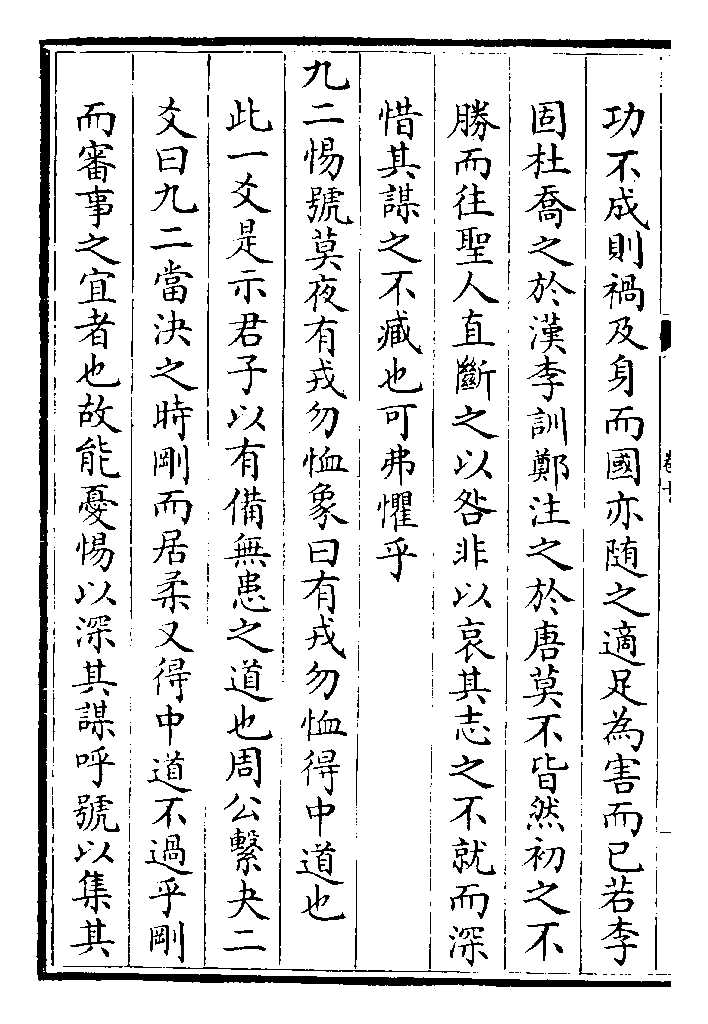 功不成則禍及身而國亦随之適足為害而已若李
固杜喬之於漢李訓鄭注之於唐莫不皆然初之不
勝而往聖人直斷之以咎非以哀其志之不就而深
惜其謀之不臧也可弗懼乎
九二惕號莫夜有戎勿恤象曰有戎勿恤得中道也
此一爻是示君子以有備無患之道也周公繫夬二
爻曰九二當決之時剛而居柔又得中道不過乎剛
而審事之宜者也故能憂惕以深其謀呼號以集其